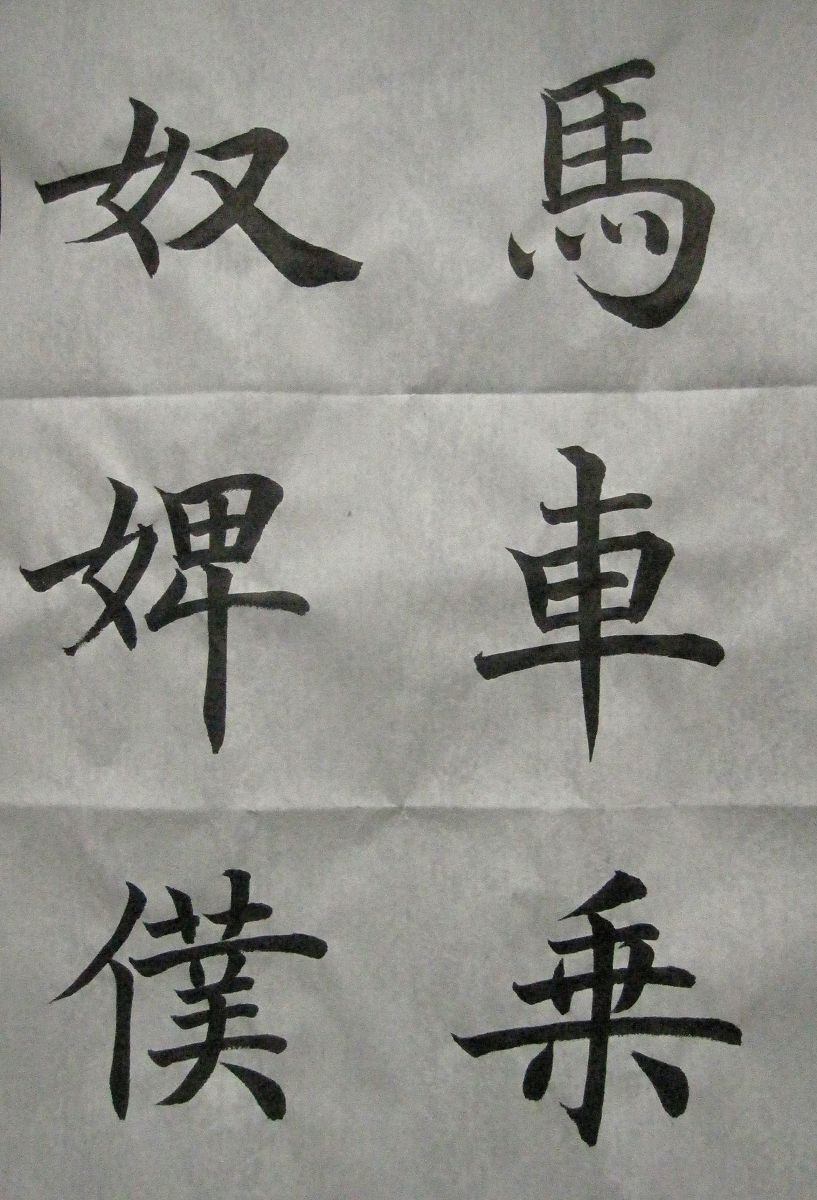 馬車乗
奴婢僕